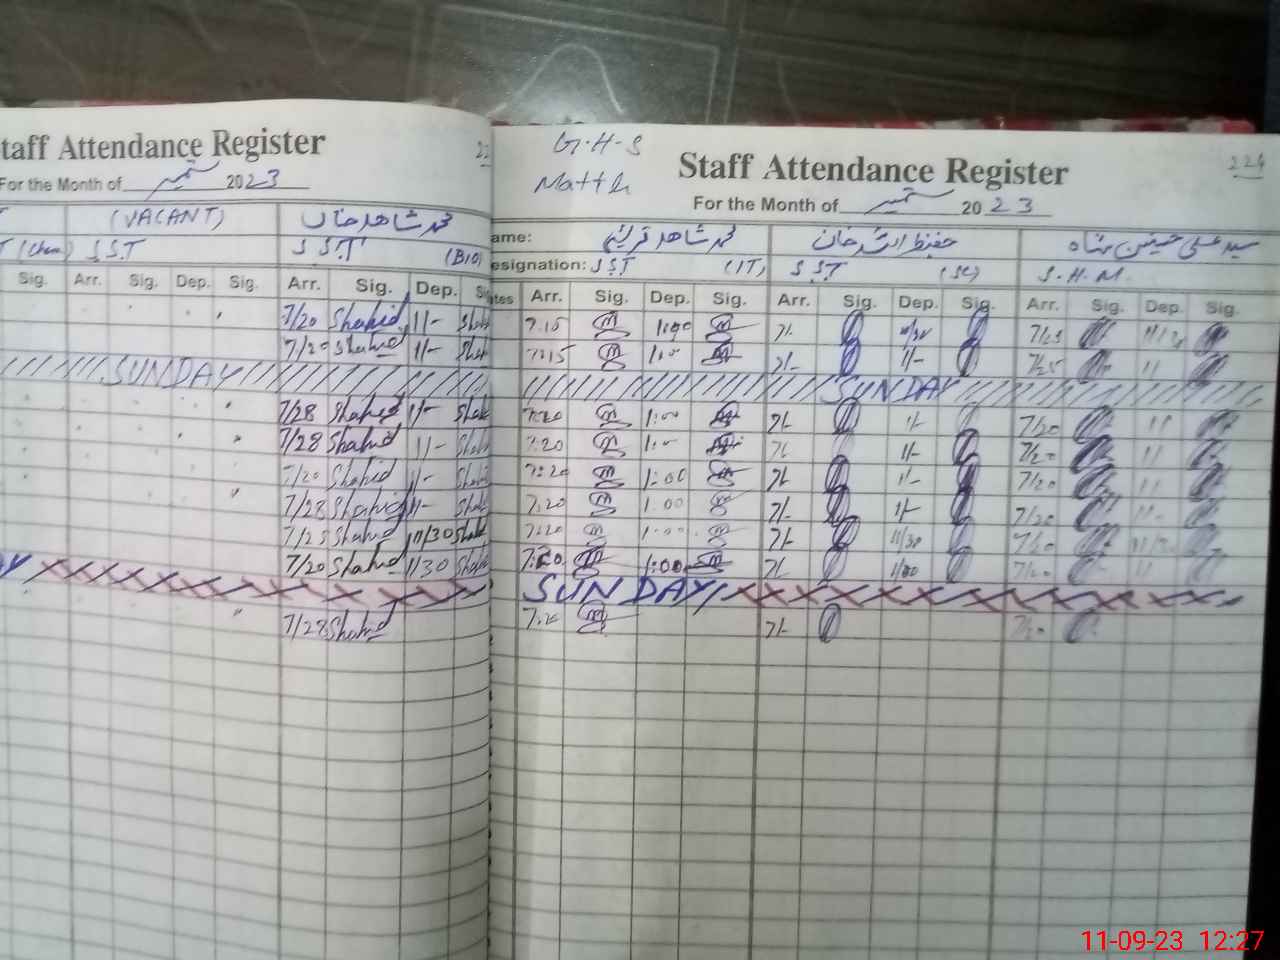 taff Attendance Register
For the Month of ستمبر 2023
(VACANT) محمد شاهد خان
(Chem) S.S.T S.S.T (BIO)
Sig. Arr. Sig. Dep. Sig. Arr. Sig. Dep.
7/20 Shahid 11/-
7/20 Shahid 11/-
SUNDAY
7/28 Shahid 11/-
7/28 Shahid 11/-
7/20 Shahid 11/-
7/28 Shahid 11/-
7/25 Shahid 11/30
7/20 Shahid 1130
7/28 Shahid
G.H.S
224
Staff Attendance Register
For the Month of ستمبر 2023
ame: محمد شاهد قریشی حفیظ الرشد خان سید علی حسنین شاه
esignation: S.S.T (IT) S.S.T (SC) S.H.M.
ates Arr. Sig. Dep. Sig. Arr. Sig. Dep. Sig. Arr. Sig. Dep. Sig.
7.15 1:00 7/-
7:15 7/- 11/- 7/25 11
SUNDAY
7:20 1:00 7/- 11/- 7/20 11
7:20 7/- 11/- 7/20 11
7:20 1:00 7/- 11/- 7/20 11
7.20 1.00 7/- 11/- 7/20
7:20 1:00 7/- 11/30 7/20
7:20 1:00 7/- 7/20 11
SUNDAY
7.20 7/- 7/20
11-09-23 12:27